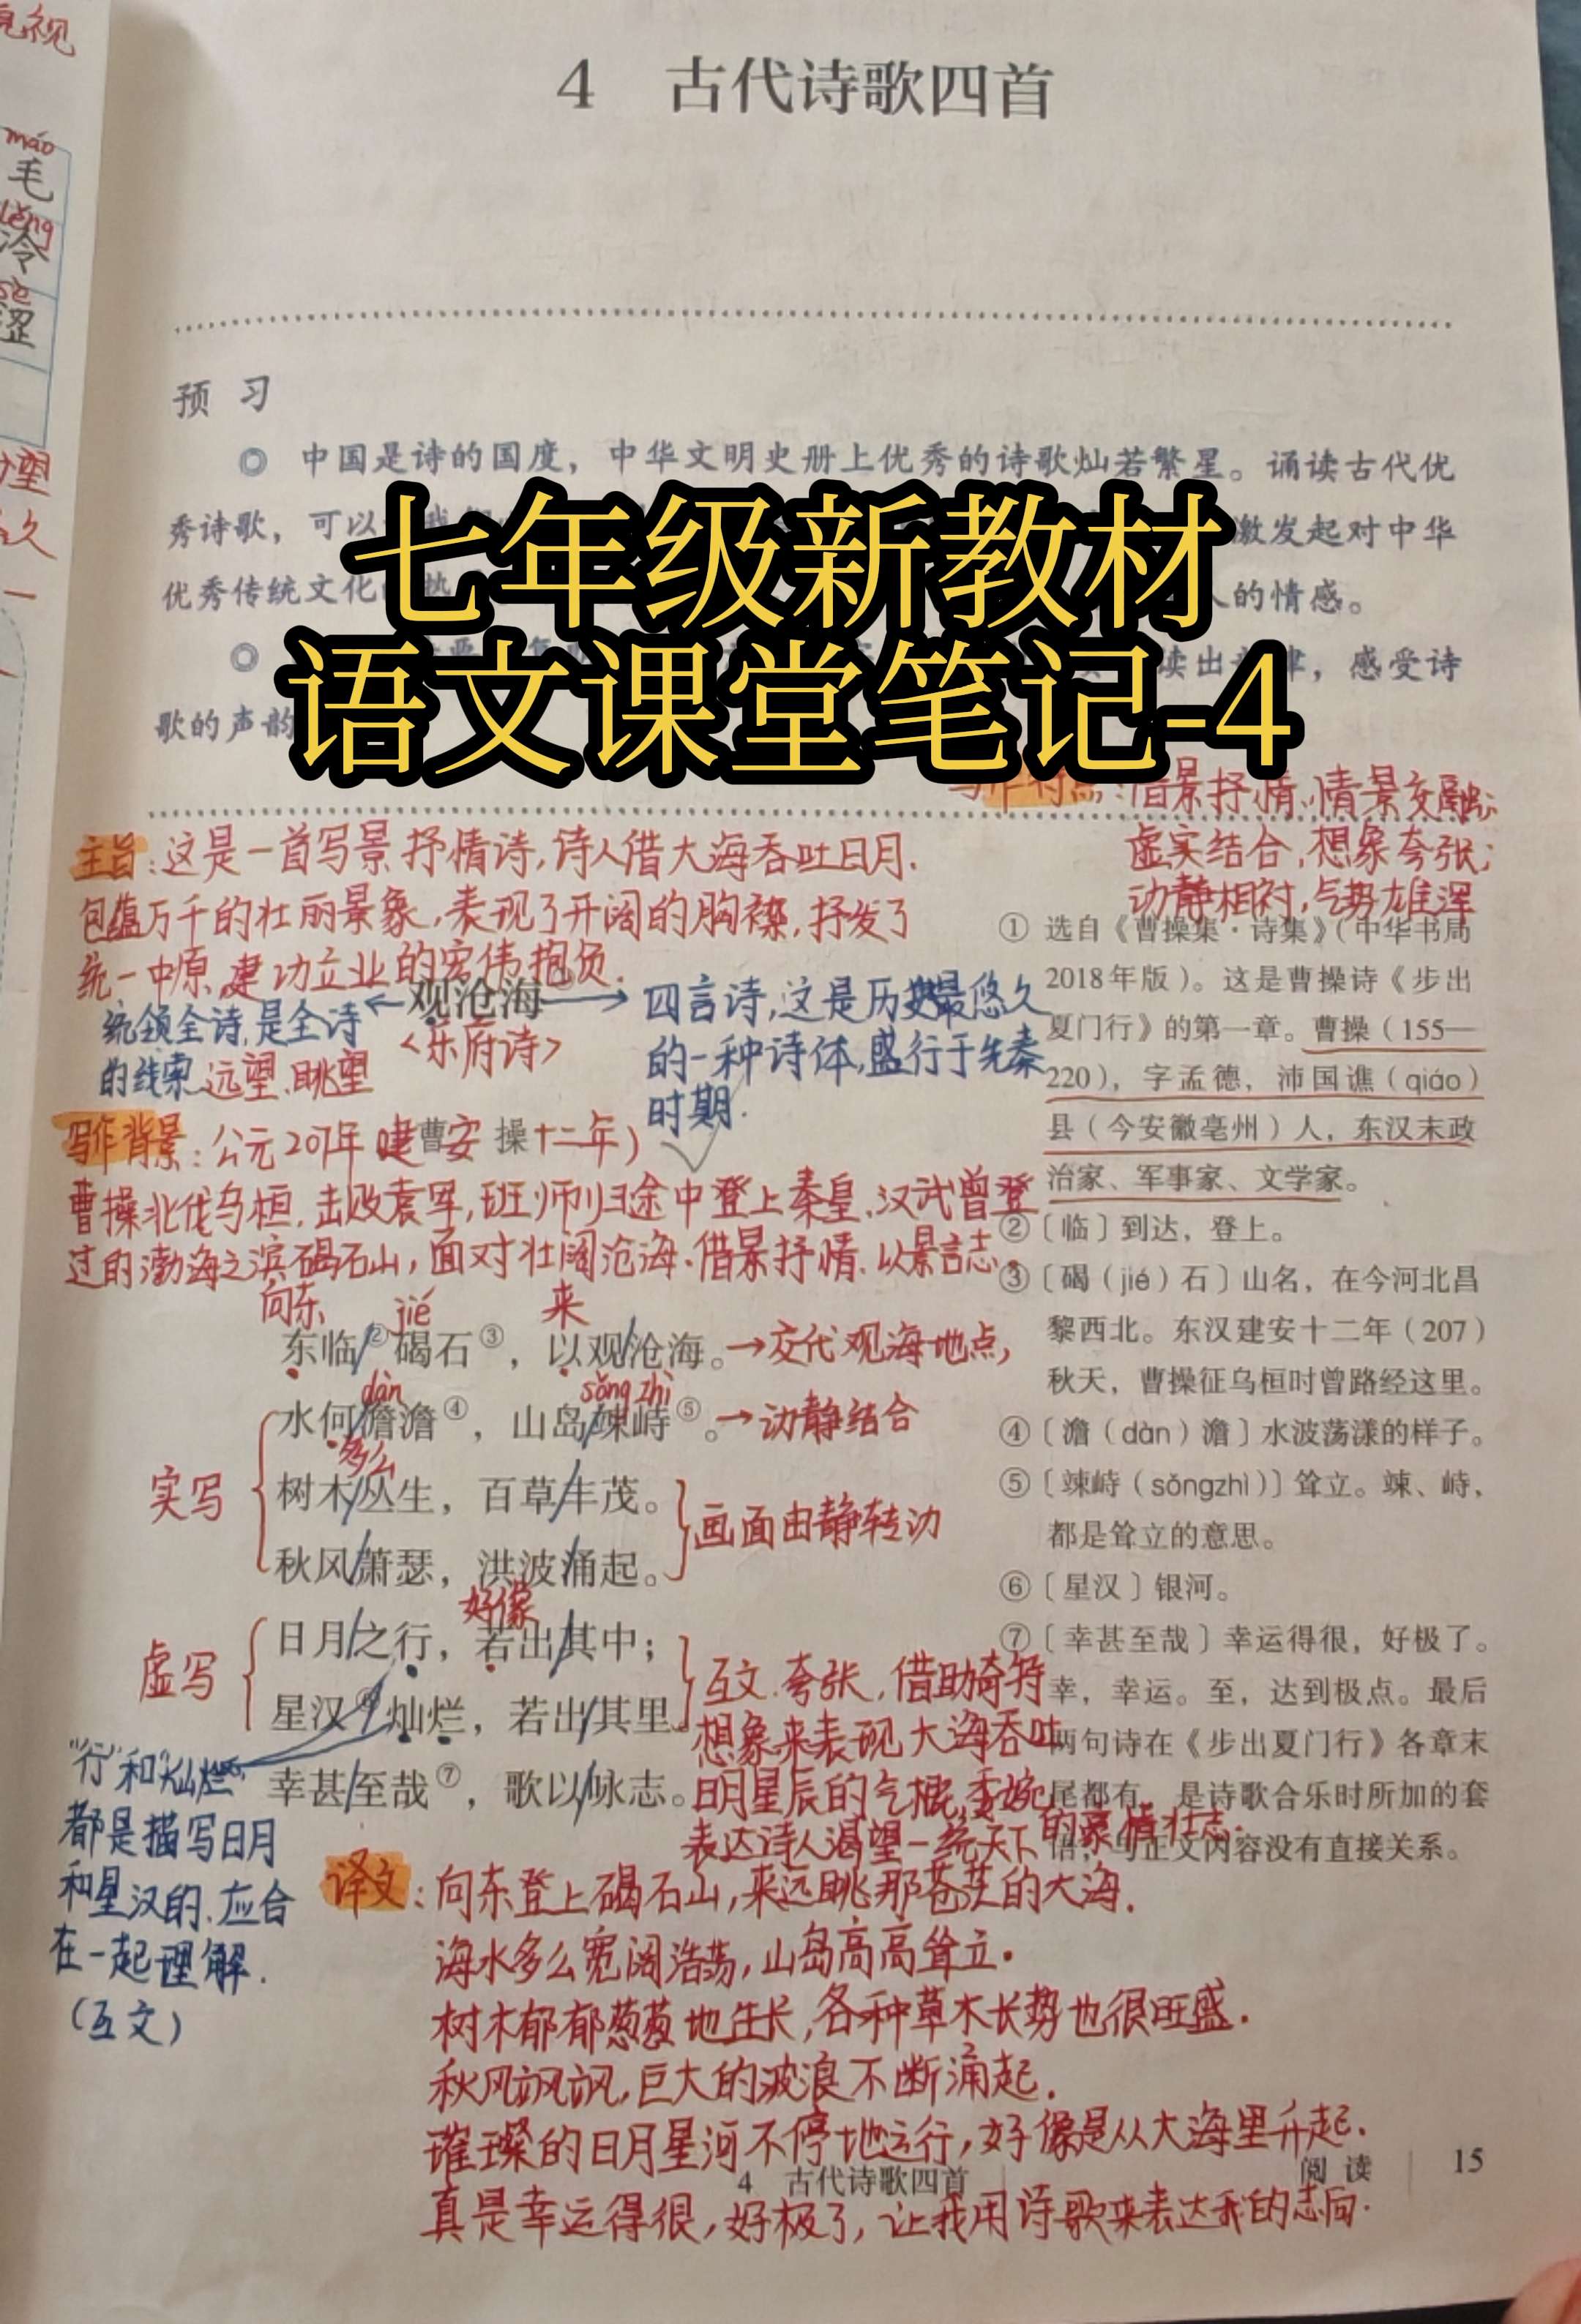 4 古代诗歌四首
máo
毛
lěng
冷
sè
涩
预 习
◎ 中国是诗的国度，中华文明史册上优秀的诗歌灿若繁星。诵读古代优
秀诗歌，可以
激发起对中华
优秀传统文化的热
人的情感。
读出
律，感受诗
歌的声韵
七年级新教材
语文课堂笔记-4
写作特点：借景抒情，情景交融；
虚实结合，想象夸张；
动静相衬，气势雄浑
主旨：这是一首写景抒情诗，诗人借大海吞吐日月.
包蕴万千的壮丽景象，表现了开阔的胸襟，抒发了
统一中原，建功立业的宏伟抱负.
统领全诗，是全诗
的线索 远望、眺望
←观沧海①→
<乐府诗>
四言诗，这是历史最悠久
的一种诗体，盛行于先秦
时期.
曹 操
写作背景：公元207年 建安十二年)
曹操北伐乌桓，击败袁军，班师归途中登上秦皇、汉武曾登
过的渤海之滨碣石山，面对壮阔沧海、借景抒情、以景言志.
向东 jié 来
东临/②碣石③，以观/沧海。→交代观海地点，
dàn sǒng zhì
水何/澹澹④，山岛/竦峙⑤。→动静结合
多么
实写
树木/丛生，百草/丰茂。
秋风/萧瑟，洪波/涌起。
画面由静转动
好像
虚写
日月/之行，若出/其中；
星汉⑥/灿烂，若出/其里。
幸甚/至哉⑦，歌以/咏志。
互文、夸张，借助奇特
想象来表现大海吞吐
日明星辰的气概，委婉
表达诗人渴望一统天下的豪情壮志.
"行"和"灿烂"
都是描写日月
和星汉的，应合
在一起理解.
(互文)
① 选自《曹操集·诗集》（中华书局
2018年版）。这是曹操诗《步出
夏门行》的第一章。曹操（155—
220），字孟德，沛国谯（qiáo）
县（今安徽亳州）人，东汉末政
治家、军事家、文学家。
②〔临〕到达，登上。
③〔碣（jié）石〕山名，在今河北昌
黎西北。东汉建安十二年（207）
秋天，曹操征乌桓时曾路经这里。
④〔澹（dàn）澹〕水波荡漾的样子。
⑤〔竦峙（sǒngzhì）〕耸立。竦、峙，
都是耸立的意思。
⑥〔星汉〕银河。
⑦〔幸甚至哉〕幸运得很，好极了。
幸，幸运。至，达到极点。最后
两句诗在《步出夏门行》各章末
尾都有，是诗歌合乐时所加的套
语，与正文内容没有直接关系。
译文：向东登上碣石山，来远眺那苍茫的大海.
海水多么宽阔浩荡，山岛高高耸立.
树木郁郁葱葱地生长，各种草木长势也很旺盛.
秋风飒飒，巨大的波浪不断涌起.
璀璨的日月星河不停地运行，好像是从大海里升起.
真是幸运得很，好极了，让我用诗歌来表达我的志向.
4 古代诗歌四首
阅 读 | 15